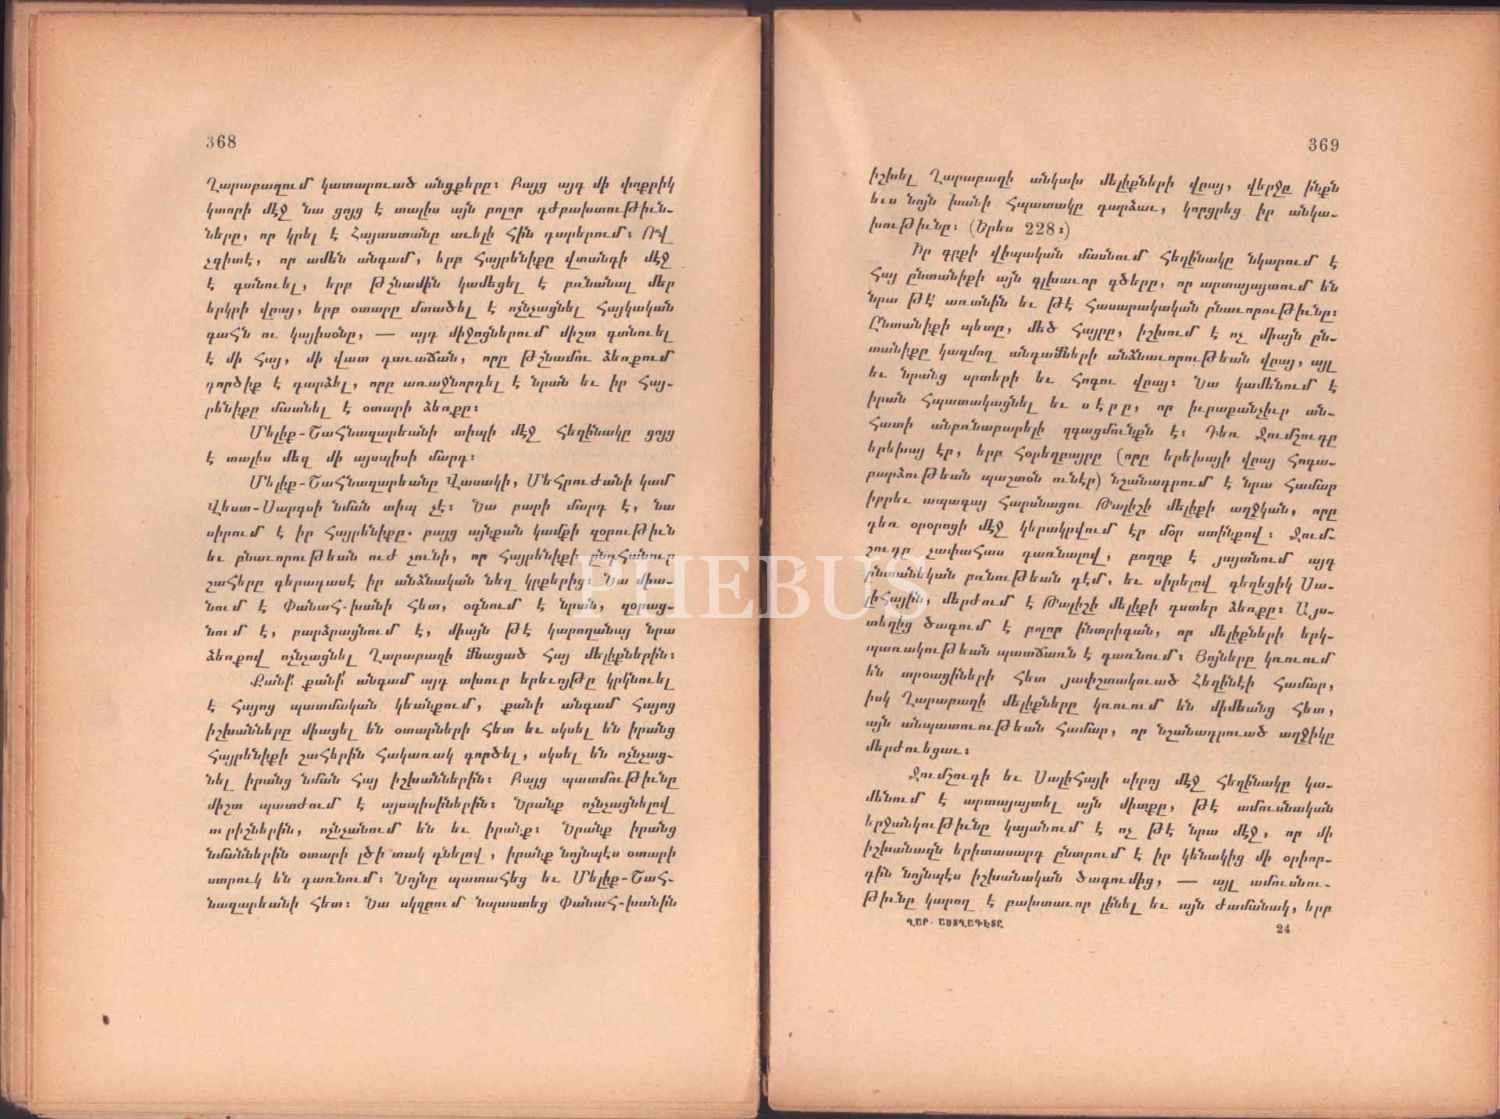 368
Ղարաբաղում կատարուած անցքերը։ Բայց այդ մի փոքրիկ
կտորի մէջ նա ցոյց է տալիս այն բոլոր դժբախտութիւն-
ները, որ կրել է Հայաստանը աւելի հին դարերում։ Ով
չգիտէ, որ ամեն անգամ, երբ հայրենիքը վտանգի մէջ
է գտնուել, երբ թշնամին կամեցել է բռնանալ մեր
երկրի վրայ, երբ օտարը մտածել է ոչնչացնել հայկական
գահն ու կայիսօնը, — այդ միջոցներում միշտ գտնուել
է մի հայ, մի վատ դաւաճան, որը թշնամու ձեռքում
գործիք է դարձել, որը առաջնորդել է նրան եւ իր հայ-
րենիքը մատնել է օտարի ձեռքը։
Մելիք-Շահնազարեանի տիպի մէջ հեղինակը ցոյց
է տալիս մեզ մի այսպիսի մարդ։
Մելիք-Շահնազարեանը Վասակի, Մեհրուժանի կամ
Վեստ-Սարգսի նման տիպ չէ։ Նա բարի մարդ է, նա
սիրում է իր հայրենիքը. բայց այնքան կամքի զօրութիւն
եւ բնաւորութեան ուժ չունի, որ հայրենիքի ընդհանուր
շահերը գերադասէ իր անձնական նեղ կրքերից։ Նա միա-
նում է Փանահ-խանի հետ, օգնում է նրան, զօրաց-
նում է, բարձրացնում է, միայն թէ կարողանայ նրա
ձեռքով ոչնչացնել Ղարաբաղի մնացած հայ մելիքներին։
Քանի՜ քանի՜ անգամ այդ տխուր երեւոյթը կրկնուել
է հայոց պատմական կեանքում, քանի անգամ հայոց
իշխանները միացել են օտարների հետ եւ սկսել են իրանց
հայրենիքի շահերին հակառակ գործել, սկսել են ոչնչաց-
նել իրանց նման հայ իշխաններին։ Բայց պատմութիւնը
միշտ պատժում է այսպիսիներին։ Նրանք ոչնչացնելով
ուրիշներին, ոչնչանում են եւ իրանք։ Նրանք իրանց
նմաններին օտարի լծի տակ դնելով, իրանք նոյնպէս օտարի
ստրուկ են դառնում։ Նոյնը պատահեց եւ Մելիք-Շահ-
նազարեանի հետ։ Նա սկզբում նպաստեց Փանահ-խանին
369
իշխել Ղարաբաղի անկախ մելիքների վրայ, վերջը ինքն
եւս նոյն խանի հպատակը դարձաւ, կորցրեց իր անկա-
խութիւնը։ (Երես 228։)
Իր գրքի վիպական մասնում հեղինակը նկարում է
հայ ընտանիքի այն գլխաւոր գծերը, որ արտայայտում են
նրա թէ՛ առտնին եւ թէ հասարակական բնաւորութիւնը։
Ընտանիքի պետը, մեծ հայրը, իշխում է ոչ միայն ըն-
տանիքը կազմող անդամների անձնաւորութեան վրայ, այլ
եւ նրանց սրտերի եւ հոգու վրայ։ Նա կամենում է
իրան հպատակացնել եւ սէրը, որ իւրաքանչիւր ան-
հատի անբռնաբարելի զգացմունքն է։ Դեռ Ջումշուդը
երեխայ էր, երբ հօրեղբայրը (որը երեխայի վրայ հոգա-
բարձութեան պաշտօն ունէր) նշանադրում է նրա համար
իբրեւ ապագայ հարսնացու Թալիշի մելիքի աղջկան, որը
դեռ օրօրոցի մէջ կերակրվում էր մօր ստինքով։ Ջում-
շուդը չափահաս դառնալով, բողոք է յայտնում այդ
ընտանեկան բռնութեան դէմ, եւ սիրելով գեղեցիկ Սա-
լիհային, մերժում է Թալիշի մելիքի դստեր ձեռքը։ Այս-
տեղից ծագում է բոլոր ինտրիգան, որ մելիքների երկ-
պառակութեան պատճառն է դառնում։ Յոյները կռւում
են տրօացիների հետ յափշտակուած Հեղինէի համար,
իսկ Ղարաբաղի մելիքները կռւում են միմեանց հետ,
այն անպատուութեան համար, որ նշանադրուած աղջիկը
մերժուեցաւ։
Ջումշուդի եւ Սալիհայի սիրոյ մէջ հեղինակը կա-
մենում է արտայայտել այն միտքը, թէ ամուսնական
երջանկութիւնը կայանում է ոչ թէ նրա մէջ, որ մի
իշխանազն երիտասարդ ընտրում է իր կենակից մի օրիոր-
դին նոյնպէս իշխանական ծագումից, — այլ ամուսնու-
թիւնը կարող է բախտաւոր լինել եւ այն ժամանակ, երբ
ՂԱՐ. ԱՍՏՂԱԳԻՏԸ 24
PHEBUS